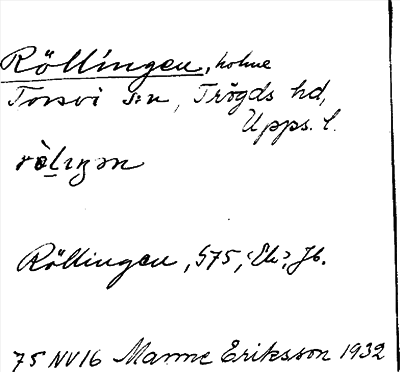 Röllingen, holme
Torsvi s:n, Trögds hd,
Upps. l.
rö̀lıŋən
Röllingen, S75, Ek, Jb.
75 NV16 Manne Eriksson 1932